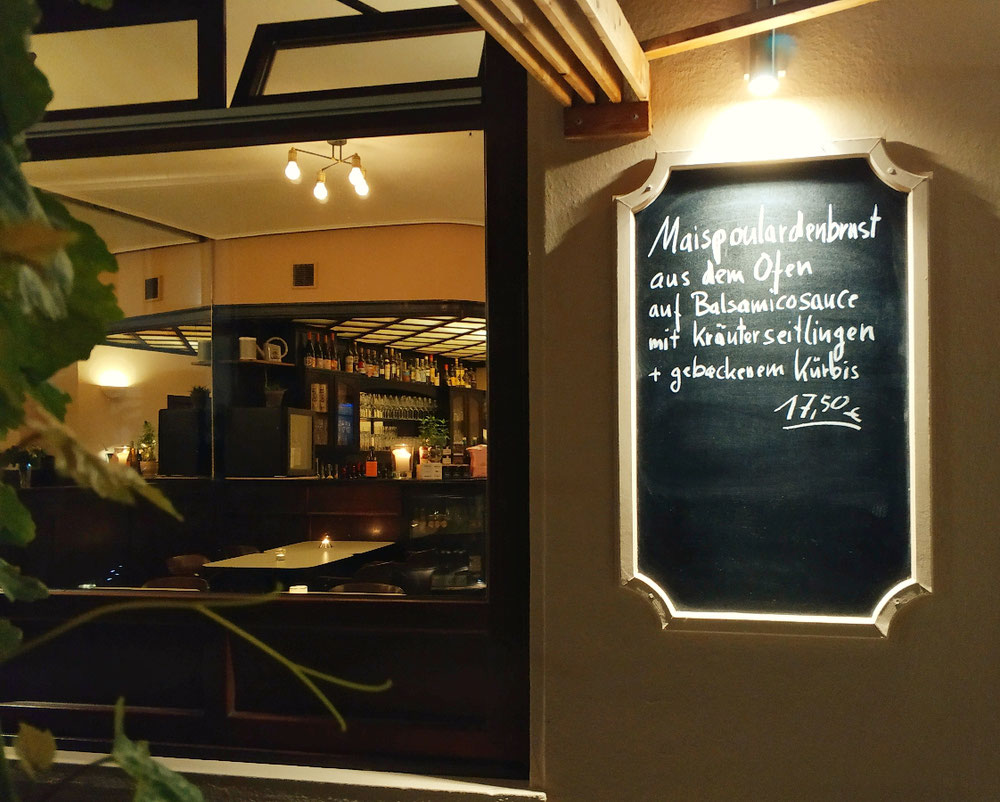 Maispoulardenbrust
aus dem Ofen
auf Balsamicosauce
mit Kräuterseitlingen
+ gebackenem Kürbis
17,50 €